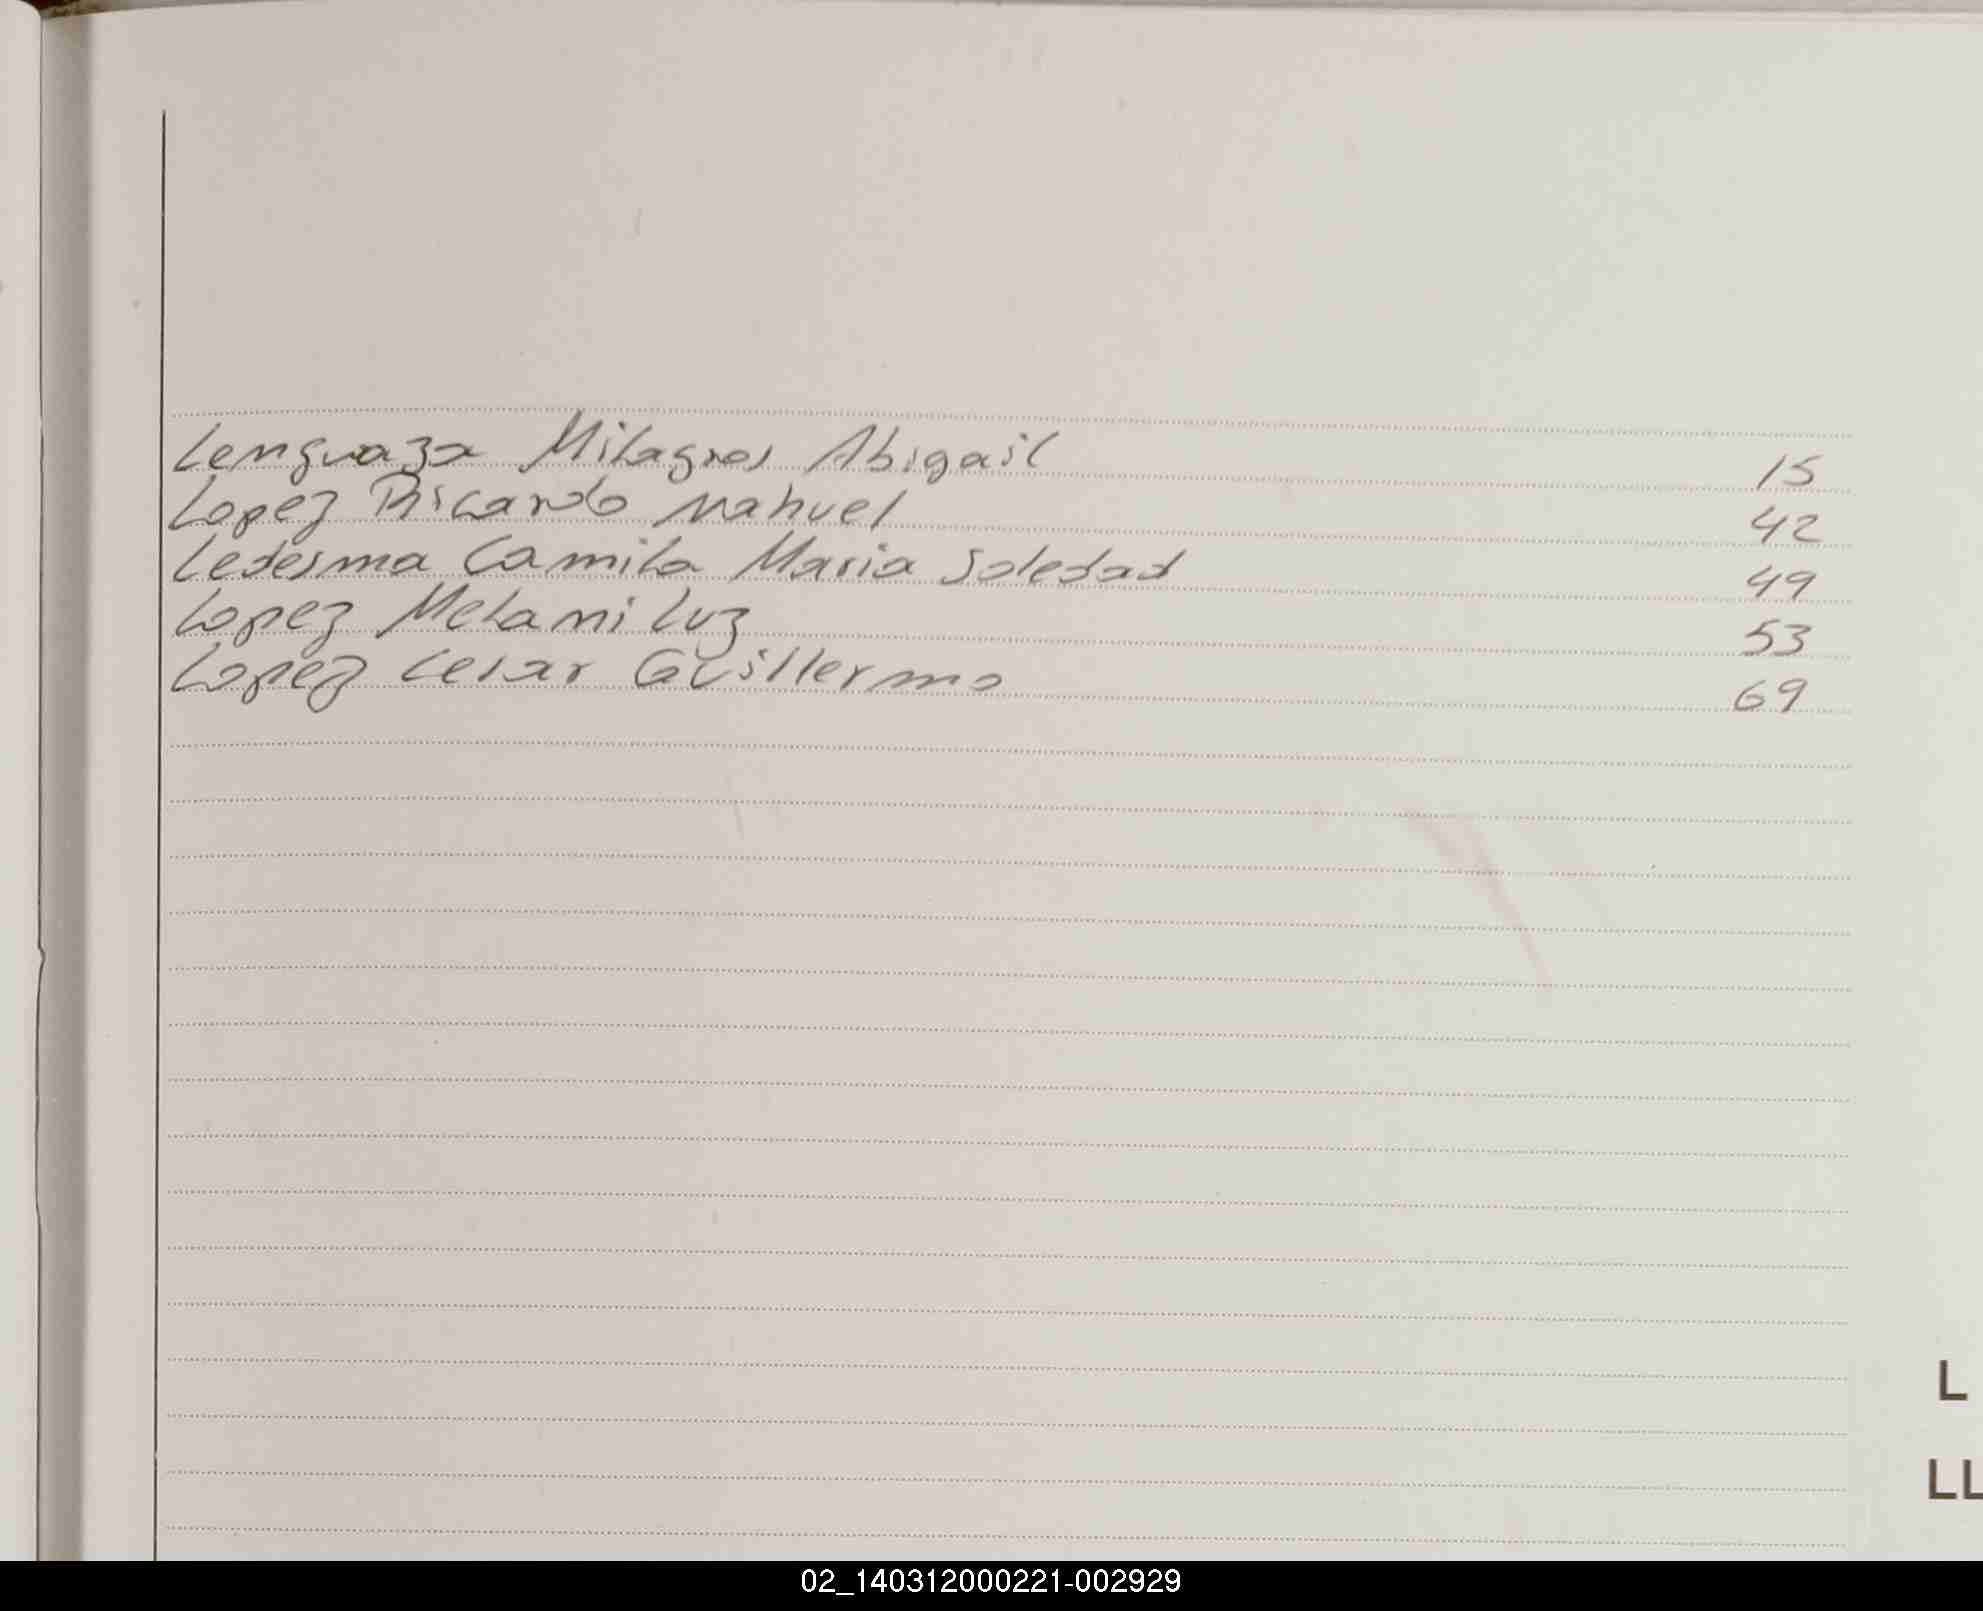 Lenguaza Milagros Abigail 15
Lopez Ricardo Nahuel 42
Ledesma Camila Maria Soledad 49
Lopez Melani Luz 53
Lopez Cesar Guillermo 69
L
LL
02_140312000221-002929